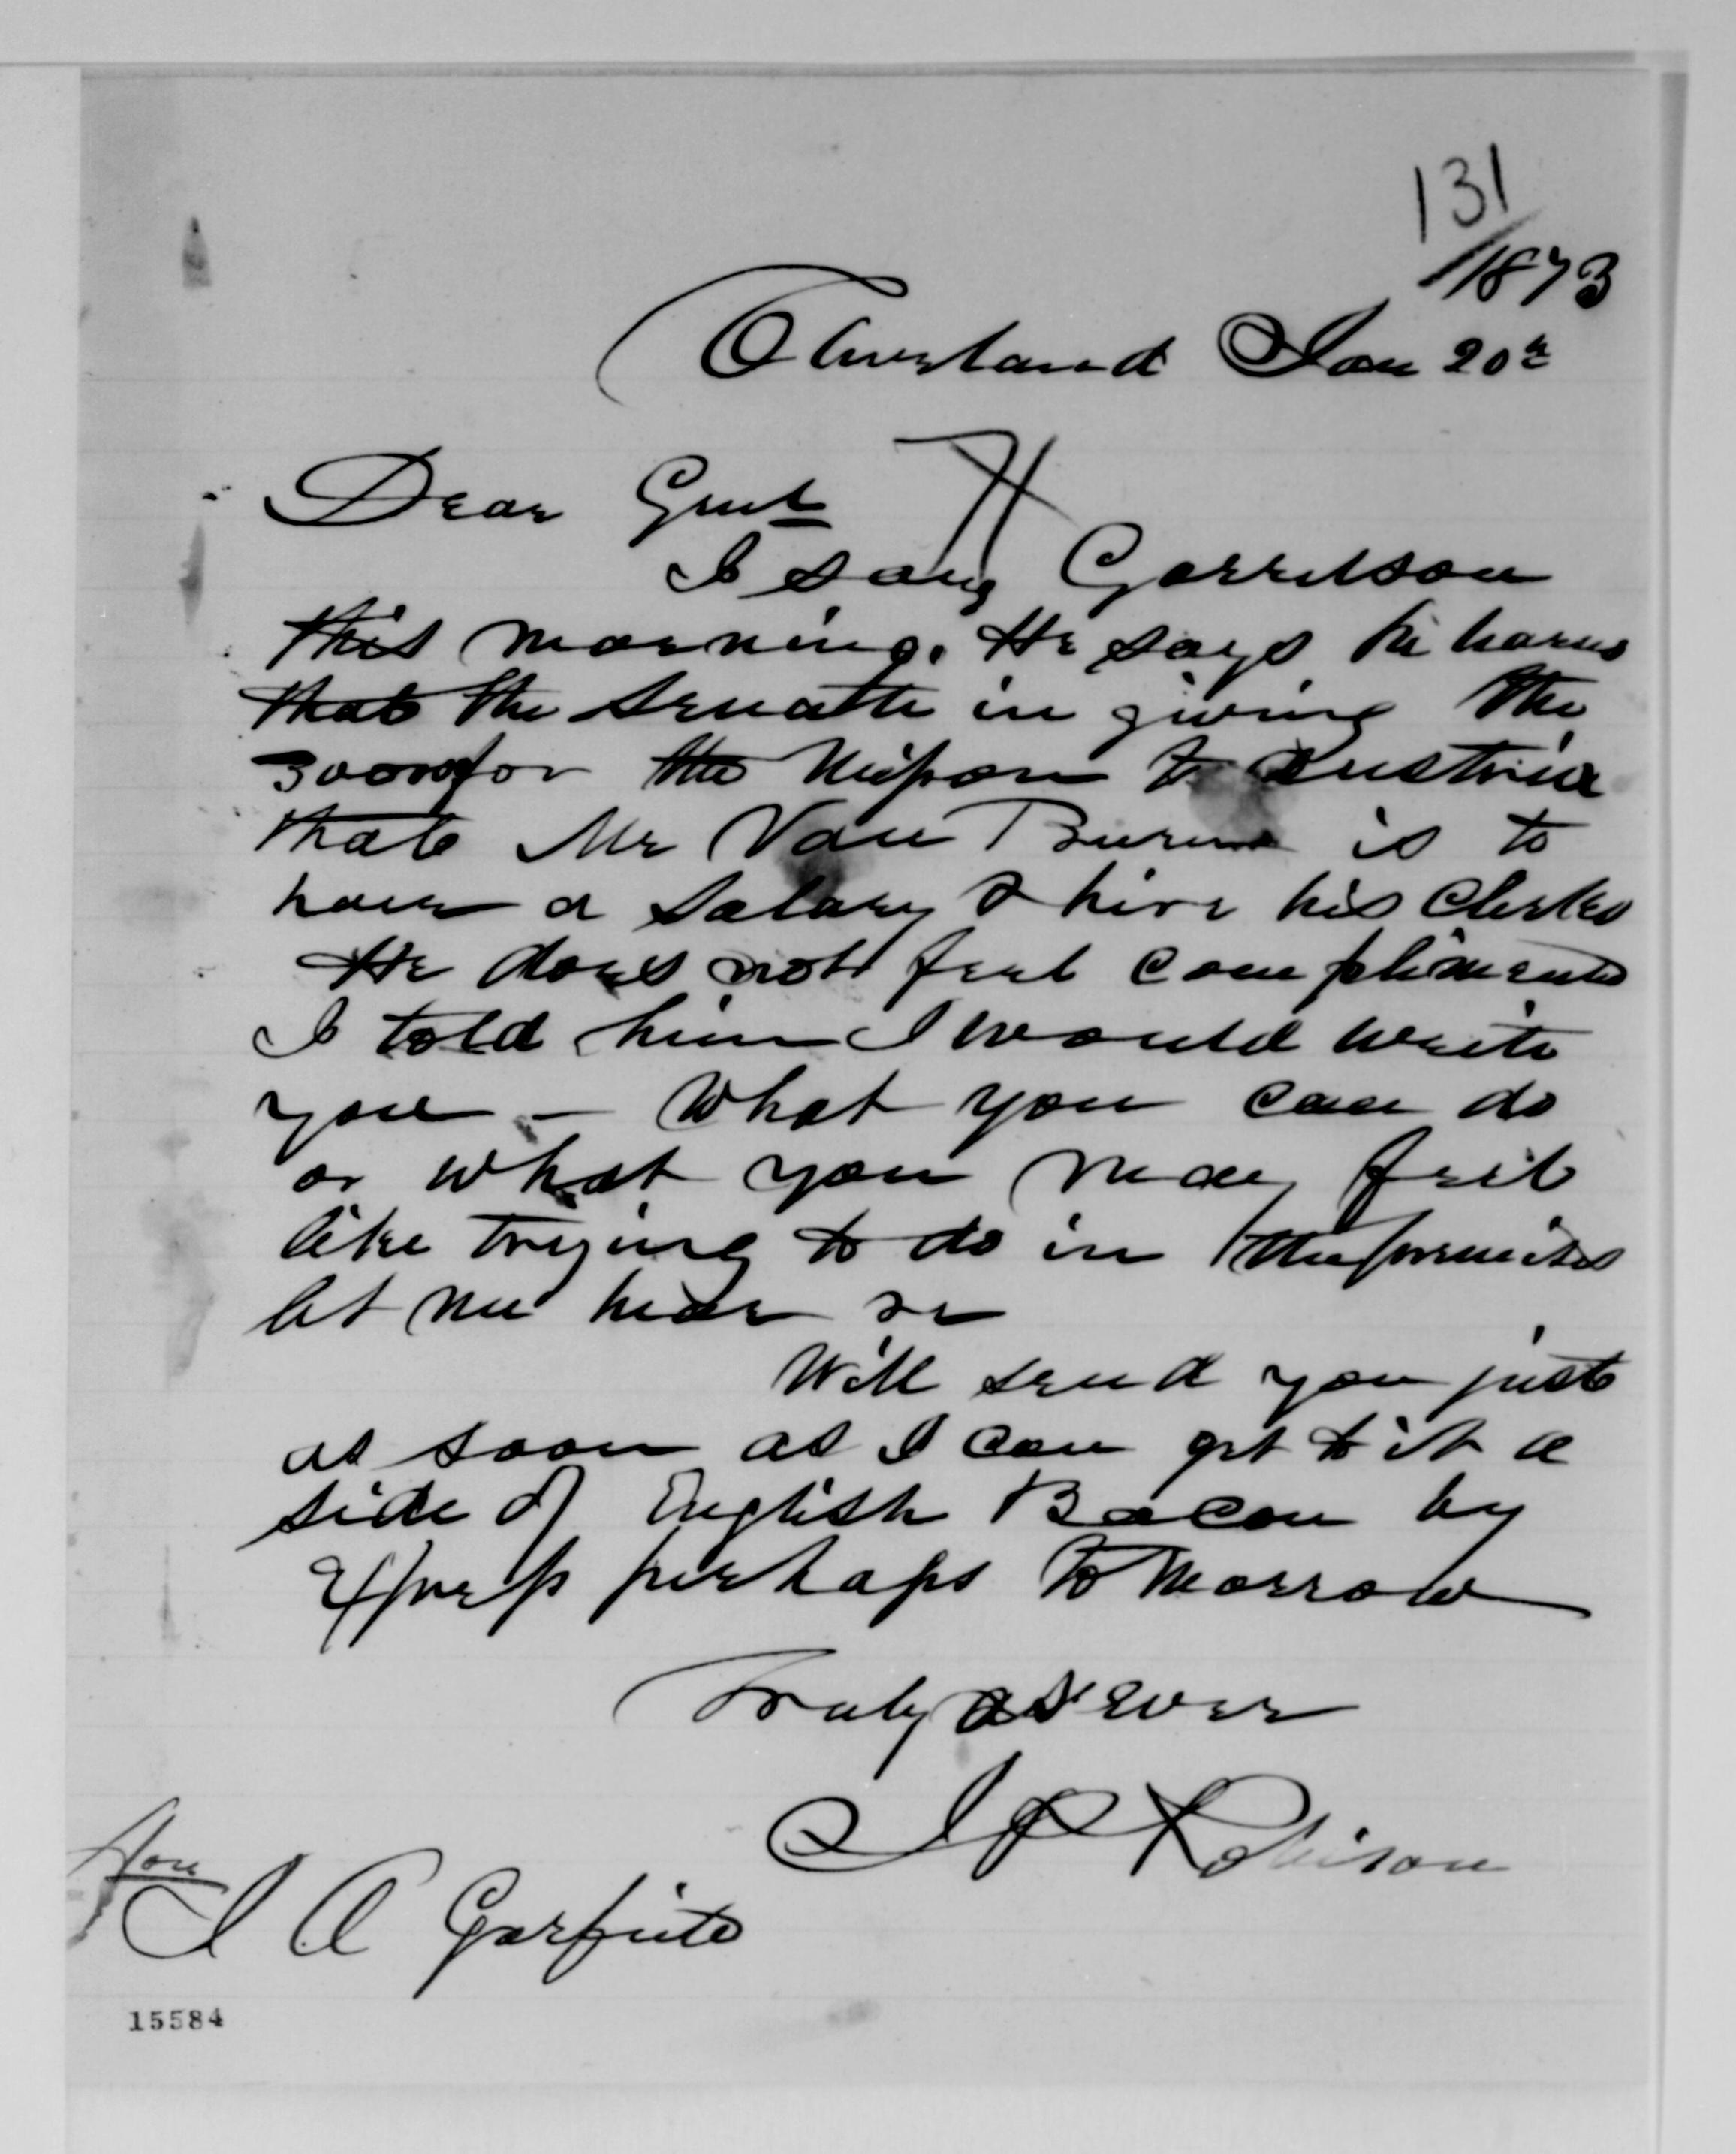 131
/1873
Cleveland Jan 20th
Dear Genl
I saw Garretson
this morning. He says he learns
that the Senate in giving the
for the Mission to Austria
that Mr Van Buren is to
have a salary & hire his Clerks
He does not feel complimented
I told him I would write
you – What you can do
or what you may feel
like trying to do in the premises
let me hear &c
Will send you just
as soon as I can get to it a
side of English Bacon by
Express perhaps to morrow
Truly as ever
J P Robison
Hon
J A Garfield
15584